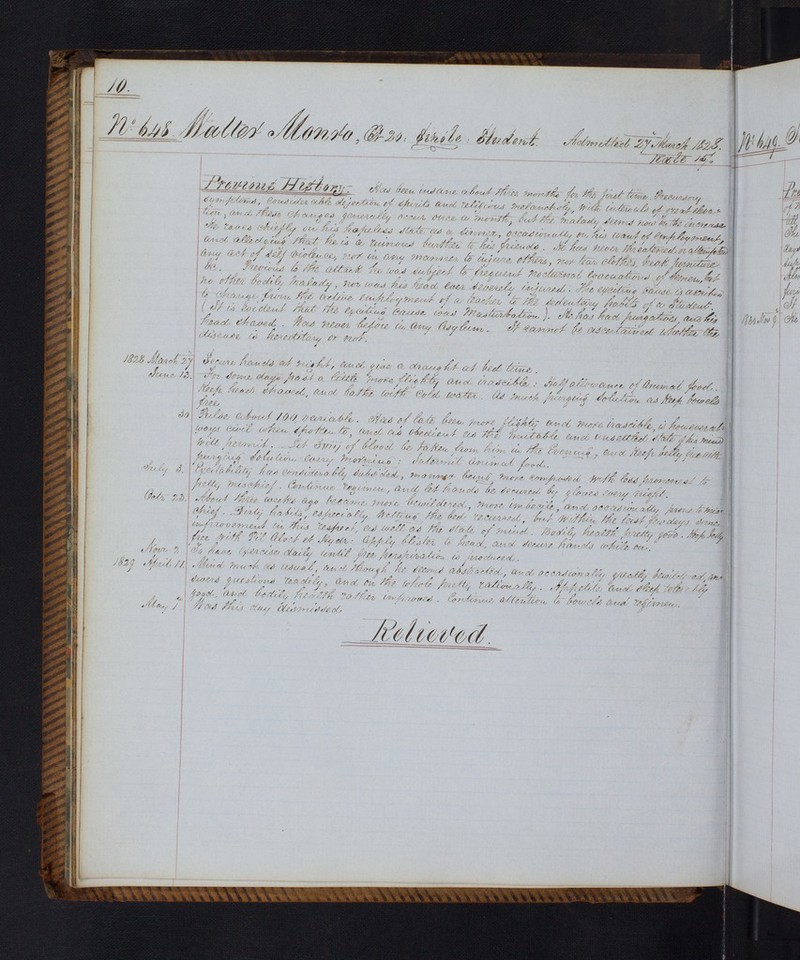 10.
No. 648. Walter Monro, Æt 20. Single Student. Admitted 27 March 1828.
Previous History. Has been insane about three months for the first time. Precursory
symptoms, considerable dejection of spirits and religious melancholy, with intervals of great eleva-
tion, and these changes generally occur once a month, but the malady seems now on the increase
He raves chiefly on his hopeless state as a sinner, occasionally on his want of employment,
and alledging that he is a ruinous burthen to his friends. He has never threatened or attempted
any act of self violence, nor in any manner to injure others, nor tear clothes, break furniture
&c. Previous to the attack he was subject to frequent nocturnal evacuations of Semen, but
no other bodily malady, nor was his head ever severely injured. The exciting cause is ascribed
to change from the active employment of a teacher to the sedentary habits of a Student.
(It is evident that the exciting cause was Masturbation). He has had purgatives, and his
head shaved. Was never before in any Asylum. It cannot be ascertained whether the
disease is hereditary or not.
1828 March 27 Secure hands at night, and give a draught at bed time.
June 12. For some days past a little more flighty and irascible: Half allowance of Animal food.
Keep head shaved, and bathe with cold water. As much purging solution as keep bowels
free.
30 Pulse about 100 variable. Has of late been more flighty and more irascible, is however al-
ways civil when spoken to, and as obedient as the irritable and unsettled state of his mind
will permit. Let of blood be taken from him in the Evening, and keep belly free with
purging solution every morning: Intermit animal food.
July 3. Excitability has considerably subsided, more composed with less proneness to
petty mischief. Continue regimen, and let hands be secured by gloves every night.
Octr 23. About three weeks ago became more bewildered, more imbecile, and occasionally prone to mis-
chief. Dirty habits, especially wetting the bed recurred, but within the last few days some
improvement in this respect, as well as the state of mind. Bodily health pretty good. Keep belly
free with Pil Aloet et Hydr: Apply blister to head, and secure hands while on.
Novr 2 To have Exercise daily until free perspiration is produced.
1829 April 11 Mind much as usual, and though he seems abstracted, and occasionally greatly bewildered, an-
swers questions readily, and on the whole pretty rationally. Appetite and sleep tolerably
good, and bodily health rather improves. Continue attention to bowels and regimen.
May 7 Was this day dismissed
Relieved.
No. 649.